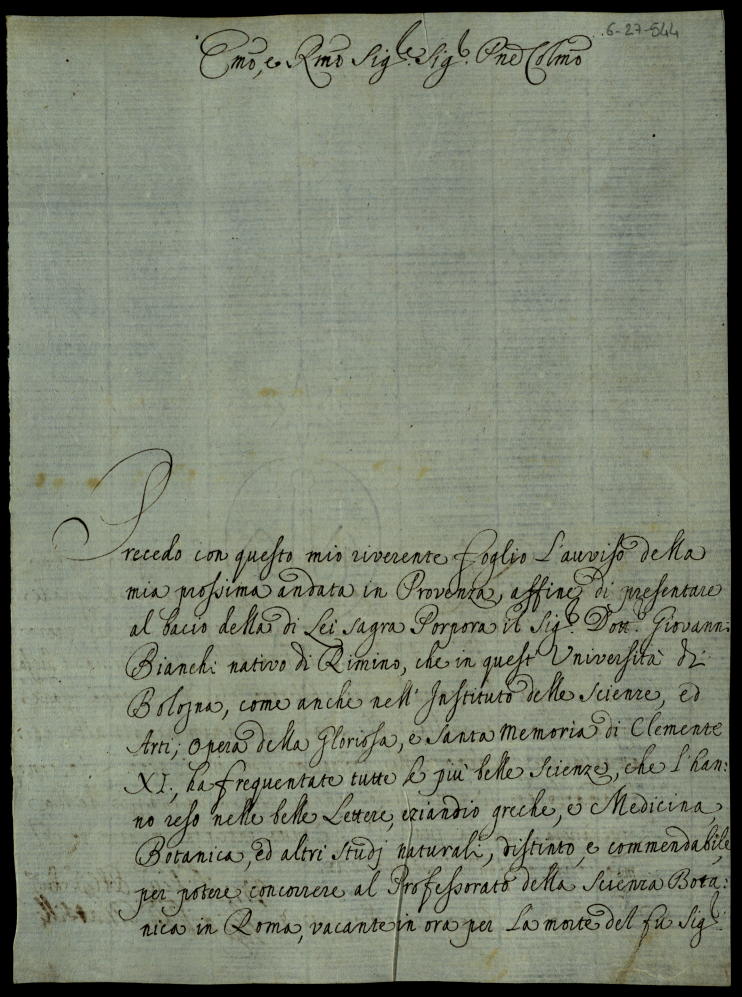 6-27-544
Emo, e Rmo Sig.re Sig.r Pne Colmo
Precedo con questo mio riverente Foglio l'avviso della
mia prossima andata in Provenza, affine di presentare
al bacio della di Lei sagra Porpora il Sig.r Dott.r Giovanni
Bianchi nativo di Rimino, che in quest'Università di
Bologna, come anche nell'Instituto delle Scienze, ed
Arti, opera della Gloriosa, e Santa Memoria di Clemente
XI., ha frequentate tutte le più belle Scienze, che l'han:
no reso nelle belle Lettere, eziandio greche, e Medicina,
Botanica, ed altri studj naturali, distinto, e commendabile,
per potere concorrere al Professorato della Scienza Bota:
nica in Roma, vacante in ora per la morte del fu Sig.r